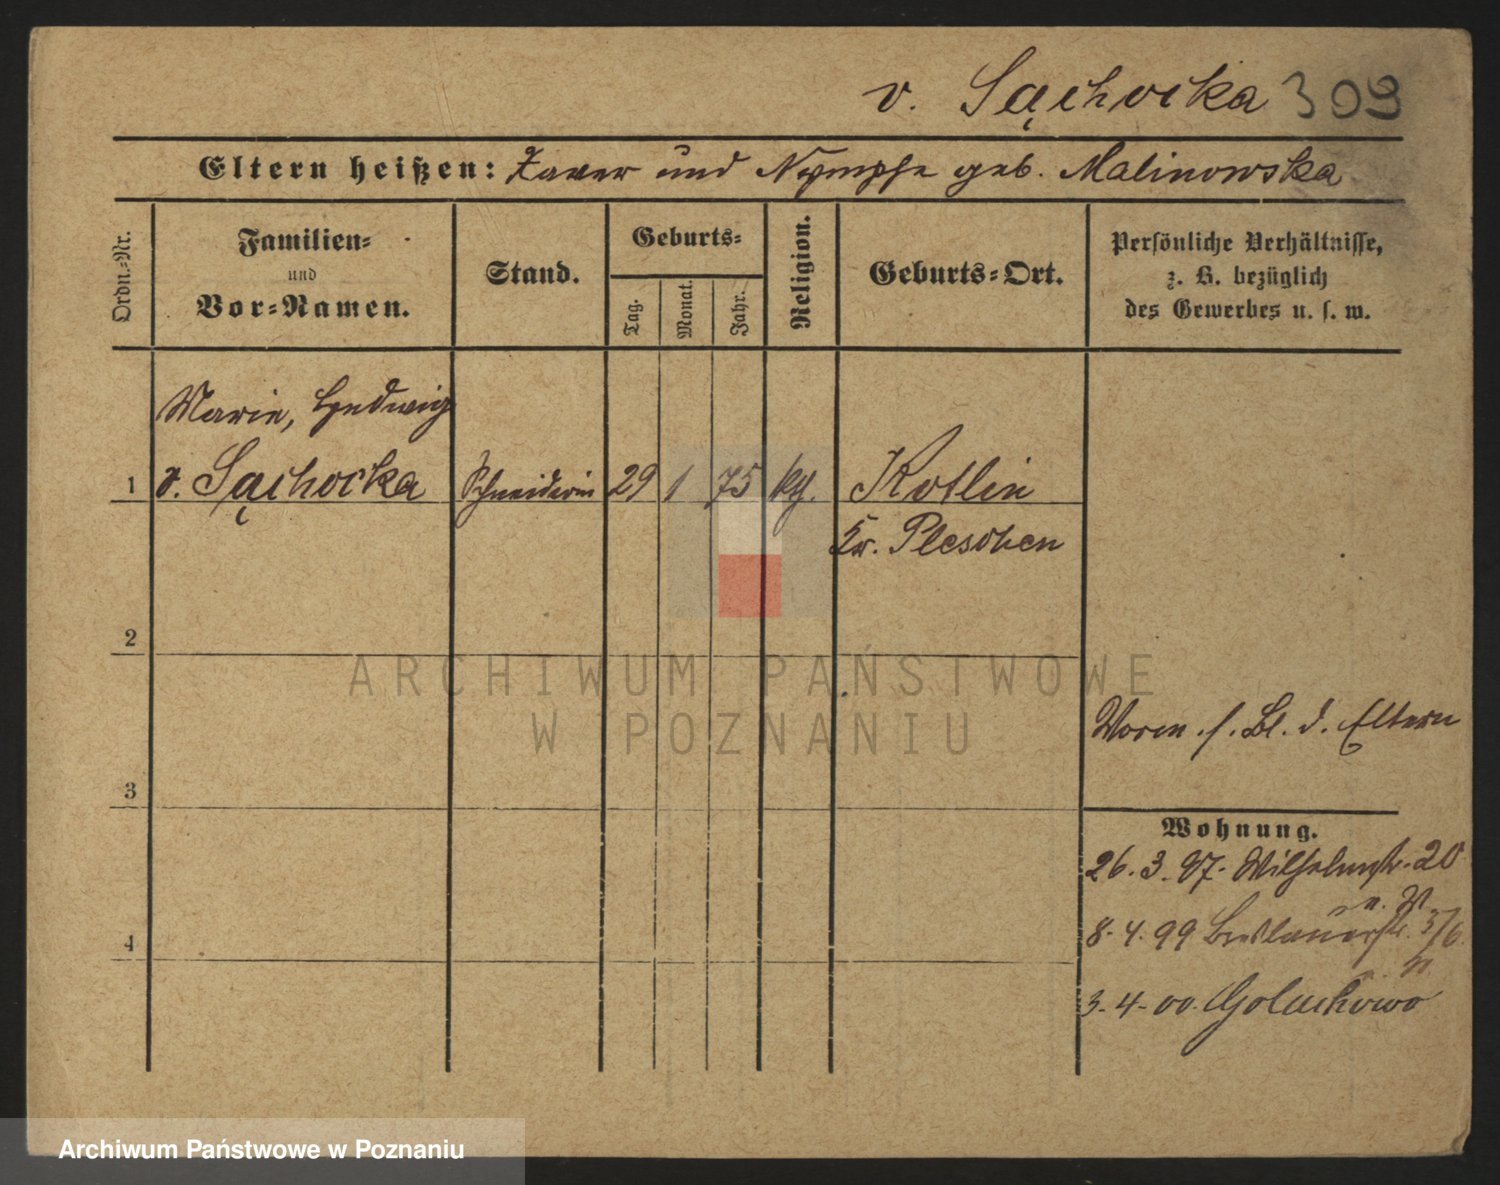 v. Sąchocka 309
Eltern heißen: Xaver und Nymphe geb. Malinowska
Ordn.-Nr.
Familien-
und
Vor-Namen.
Stand.
Geburts-
Tag.
Monat.
Jahr.
Religion.
Geburts-Ort.
Persönliche Verhältnisse,
z. B. bezüglich
des Gewerbes u. s. w.
Marie, Hedwig
1 v. Sąchocka Schneiderin 29 1 75 kth. Kotlin
Kr. Pleschen
2
ARCHIWUM PAŃSTWOWE
W POZNANIU
Vorm. s. Bl. d. Eltern
3
Wohnung.
26.3.97. Wilhelmstr. 20
8.4.99 Breslauerstr. 5/6.
4
3-4-00. Goluchowo
Archiwum Państwowe w Poznaniu